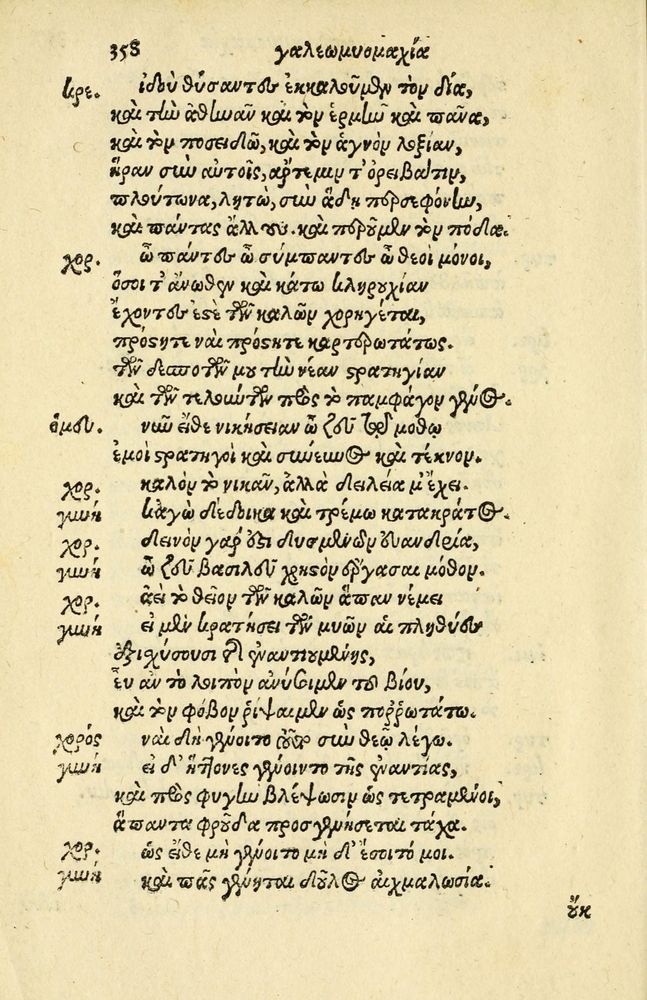 358 γαλεωμυομαχία
κρε. ἰδοὺ θύσαντες ἐκκαλοῦμεν τὸν δία,
καὶ τὴν ἀθηνᾶν καὶ τὸν ἑρμῆν καὶ πᾶνα,
καὶ τὸν ποσειδῶ, καὶ τὸν ἁγνὸν λοξίαν,
ἥραν σὺν αὐτοῖς, ἄρτεμιν τ' ὀρειβάτιν,
πλούτωνα, λητὼ, σὺν ἅδῃ περσεφόνην,
καὶ πάντας ἄλλους. καὶ περοῦμεν τὸν πόδα.
χορ. ὦ πάντες ὦ σύμπαντες ὦ θεοὶ μόνοι,
ὅσοι τ' ἄνωθεν καὶ κάτω κληρουχίαν
ἔχοντες ἐστὲ τῶν καλῶν χορηγέται,
πρόσητε ναὶ πρόσητε καρτερωτάτως.
τῶν δεσποτῶν μου τὴν νέαν στρατηγίαν
καὶ τῶν τελούντων πρὸς τὸ παμφάγον γένος.
ὁμοῦ. νῦν εἴθε νικήσειαν ὦ ζεῦ ἐν μόθῳ
ἐμοὶ στρατηγοὶ καὶ σύνευνος καὶ τέκνον.
χορ. καλὸν τὸ νικᾶν, ἀλλὰ δειλεία μ' ἔχει.
γυνή κἀγὼ δέδοικα καὶ τρέμω κατακράτος.
χορ. δεινὸν γάρ ἐστι δυσμενῶν εὐανδρία,
γυνή ὦ ζεῦ βασιλεῦ χρηστὸν ἔργασαι μόθον.
χορ. ἀεὶ τὸ θεῖον τῶν καλῶν ἅπαν νέμει
γυνή εἰ μὲν κρατήσει τῶν μυῶν αἱ πληθύες
ἐξισχύσουσι τῆς ἐναντιουμένης,
εὖ ἂν τὸ λοιπὸν ἀνύοιμεν τοῦ βίου,
καὶ τὸν φόβον ῥίψαιμεν ὡς ποῤῥωτάτω.
χορός ναὶ δὴ γένοιτο σὺν θεῷ λέγω.
γυνή εἰ δ' ἥττονες γένοιντο τῆς ἐναντίας,
καὶ πρὸς φυγὴν βλέψωσιν ὡς τετραμένοι,
ἅπαντα φροῦδα προσγενήσεται τάχα.
χορ. ὡς εἴθε μὴ γένοιτο μὴ δ' ἔσοιτό μοι.
γυνή καὶ πᾶς γένηται δοῦλος αἰχμαλωσία.
οὔκ